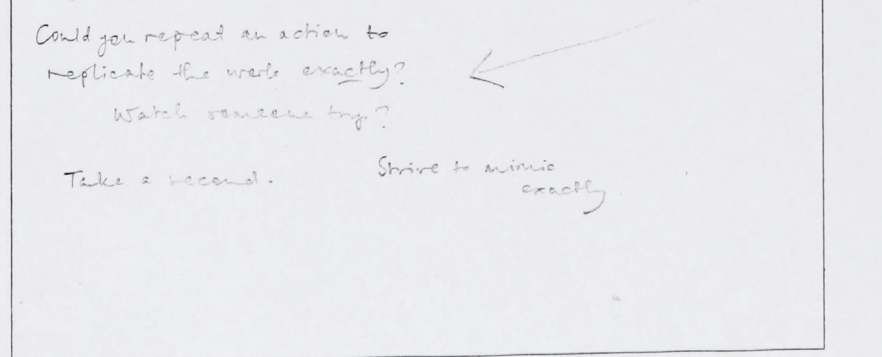 Could you repeat an action to
replicate the work exactly?
Watch someone try?
Take a second.
Strive to mimic
exactly.